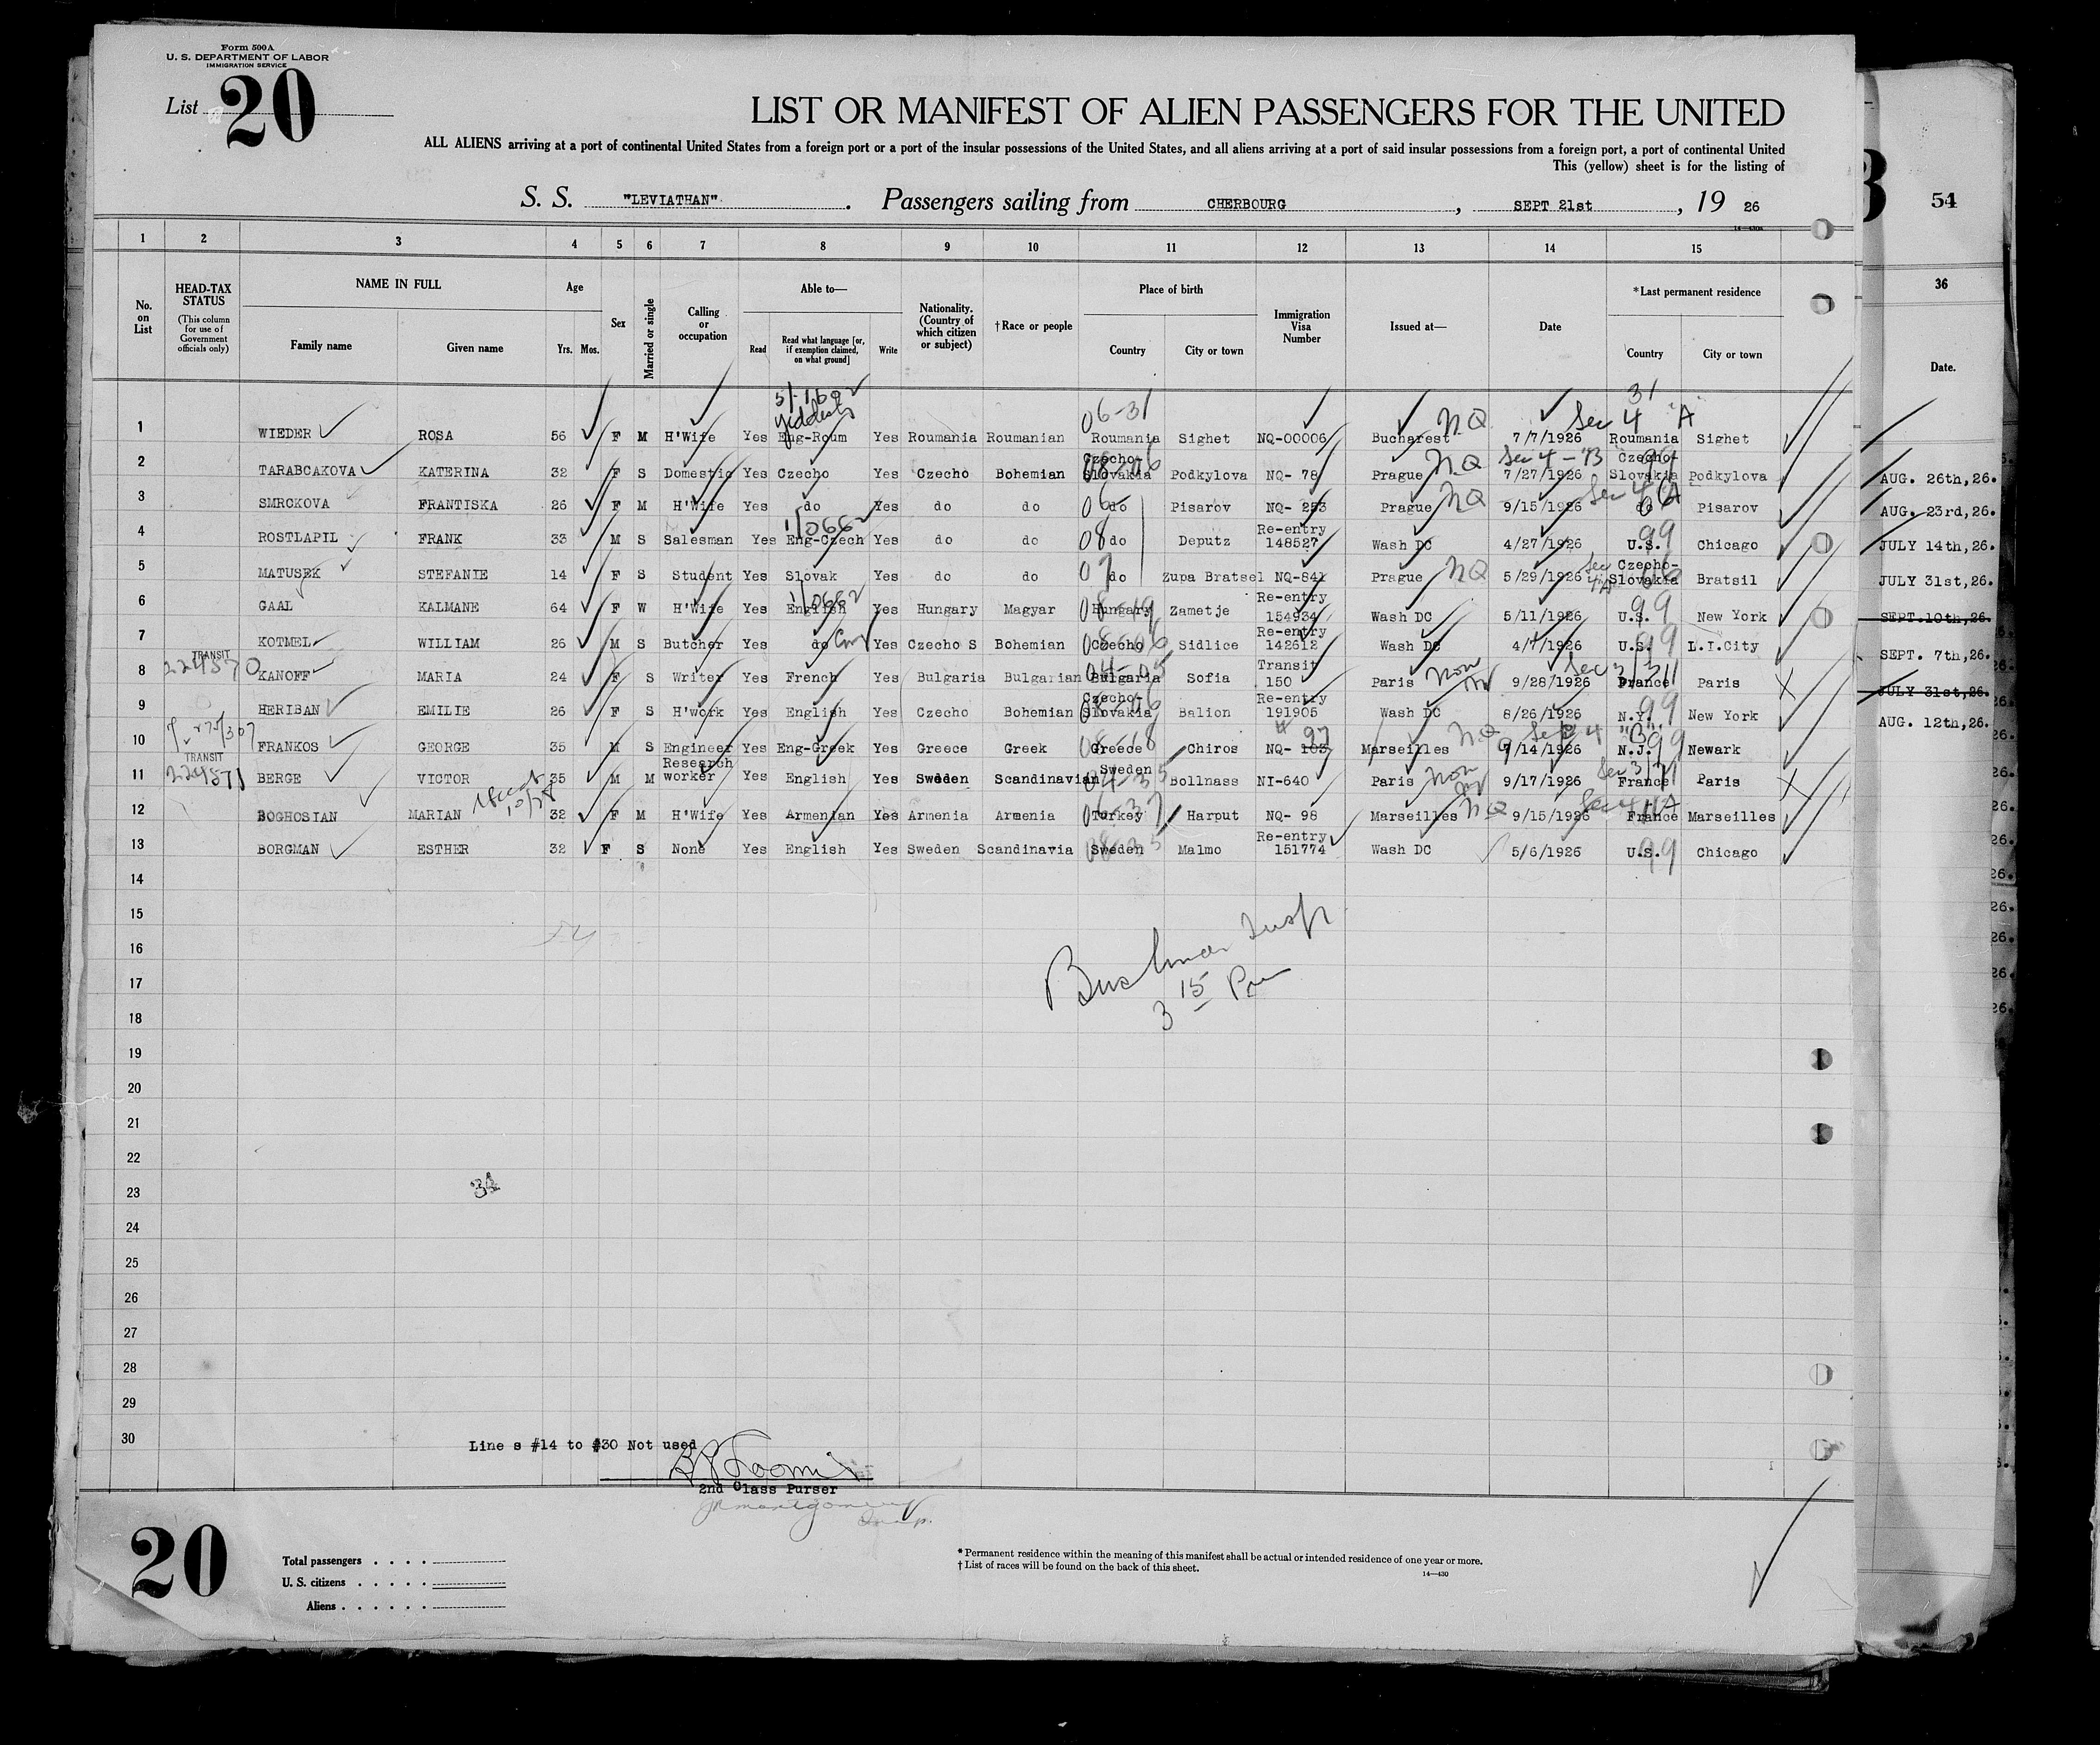 Form 500A
U. S. DEPARTMENT OF LABOR
IMMIGRATION SERVICE
List 20
LIST OR MANIFEST OF ALIEN PASSENGERS FOR THE UNITED
ALL ALIENS arriving at a port of continental United States from a foreign port or a port of the insular possessions of the United States, and all aliens arriving at a port of said insular possessions from a foreign port, a port of continental United
This (yellow) sheet is for the listing of
S. S. "LEVIATHAN". Passengers sailing from CHERBOURG, SEPT 21st, 19 26
54
1 2 3 4 5 6 7 8 9 10 11 12 13 14 15
36
No. on List
HEAD-TAX STATUS (This column for use of Government officials only)
NAME IN FULL
Family name Given name
Age
Yrs. Mos.
Sex
Married or single
Calling or occupation
Able to—
Read Read what language [or, if exemption claimed, on what ground] Write
Nationality. (Country of which citizen or subject)
†Race or people
Place of birth
Country City or town
Immigration Visa Number
Issued at—
Date
*Last permanent residence
Country City or town
Date.
31
Yiddish 06-31 NQ Sec 4 "A"
1 WIEDER ROSA 56 F M H'Wife Yes Eng-Roum Yes Roumania Roumanian Roumania Sighet NQ-00006 Bucharest 7/7/1926 Roumania Sighet
2 TARABCAKOVA KATERINA 32 F S Domestic Yes Czecho Yes Czecho Bohemian Czecho-Slovakia Podkylova NQ- 78 Prague NQ Sec 4 - B 7/27/1926 Czecho-Slovakia Podkylova AUG. 26th,26.
3 SMRCKOVA FRANTISKA 26 F M H'Wife Yes do Yes do do do Pisarov NQ- 253 Prague NQ 9/15/1926 Sec 4 A do Pisarov AUG. 23rd,26.
4 ROSTLAPIL FRANK 33 M S Salesman Yes Eng-Czech Yes do do 08 do Deputz Re-entry 148527 Wash DC 4/27/1926 U.S. 99 Chicago JULY 14th,26.
5 MATUSEK STEFANIE 14 F S Student Yes Slovak Yes do do 07 do Zupa Bratsel NQ-841 Prague NQ 5/29/1926 Sec 4"A" Czecho-Slovakia Bratsil JULY 31st,26.
6 GAAL KALMANE 64 F W H'Wife Yes English Yes Hungary Magyar Hungary Zametje Re-entry 154934 Wash DC 5/11/1926 U.S. 99 New York SEPT.10th,26.
7 KOTMEL WILLIAM 26 M S Butcher Yes do Yes Czecho S Bohemian Czecho Sidlice Re-entry 142612 Wash DC 4/4/1926 U.S. 99 L.I.City SEPT. 7th,26.
TRANSIT
224570
8 KANOFF MARIA 24 F S Writer Yes French Yes Bulgaria Bulgarian Bulgaria Sofia Transit 150 Paris Non 9/28/1926 Sec 3 France Paris JULY 31st,26.
9 HERIBAN EMILIE 26 F S H'work Yes English Yes Czecho Bohemian Czecho-Slovakia Balion Re-entry 191905 Wash DC 8/26/1926 N.Y. 99 New York AUG. 12th,26.
10 FRANKOS GEORGE 35 M S Engineer Yes Eng-Greek Yes Greece Greek Greece Chiros NQ- 103 97 Marseilles NQ 9/14/1926 Sec 4 "B" N.J. 99 Newark
TRANSIT
224571
11 BERGE VICTOR 35 M M Research worker Yes English Yes Sweden Scandinavian Sweden Bollnass NI-640 Paris Non 9/17/1926 Sec 3 France Paris
12 BOGHOSIAN MARIAN 32 F M H'Wife Yes Armenian Yes Armenia Armenia Turkey Harput NQ- 98 Marseilles NQ 9/15/1926 Sec 4 A France Marseilles
13 BORGMAN ESTHER 32 F S None Yes English Yes Sweden Scandinavia Sweden Malmo Re-entry 151774 Wash DC 5/6/1926 U.S. 99 Chicago
14
15
16
17
3 15 Pm
18
19
20
21
22
23
24
25
26
27
28
29
30
Line s #14 to #30 Not used
2nd Class Purser
20
Total passengers
U. S. citizens
Aliens
* Permanent residence within the meaning of this manifest shall be actual or intended residence of one year or more.
† List of races will be found on the back of this sheet.
14—430